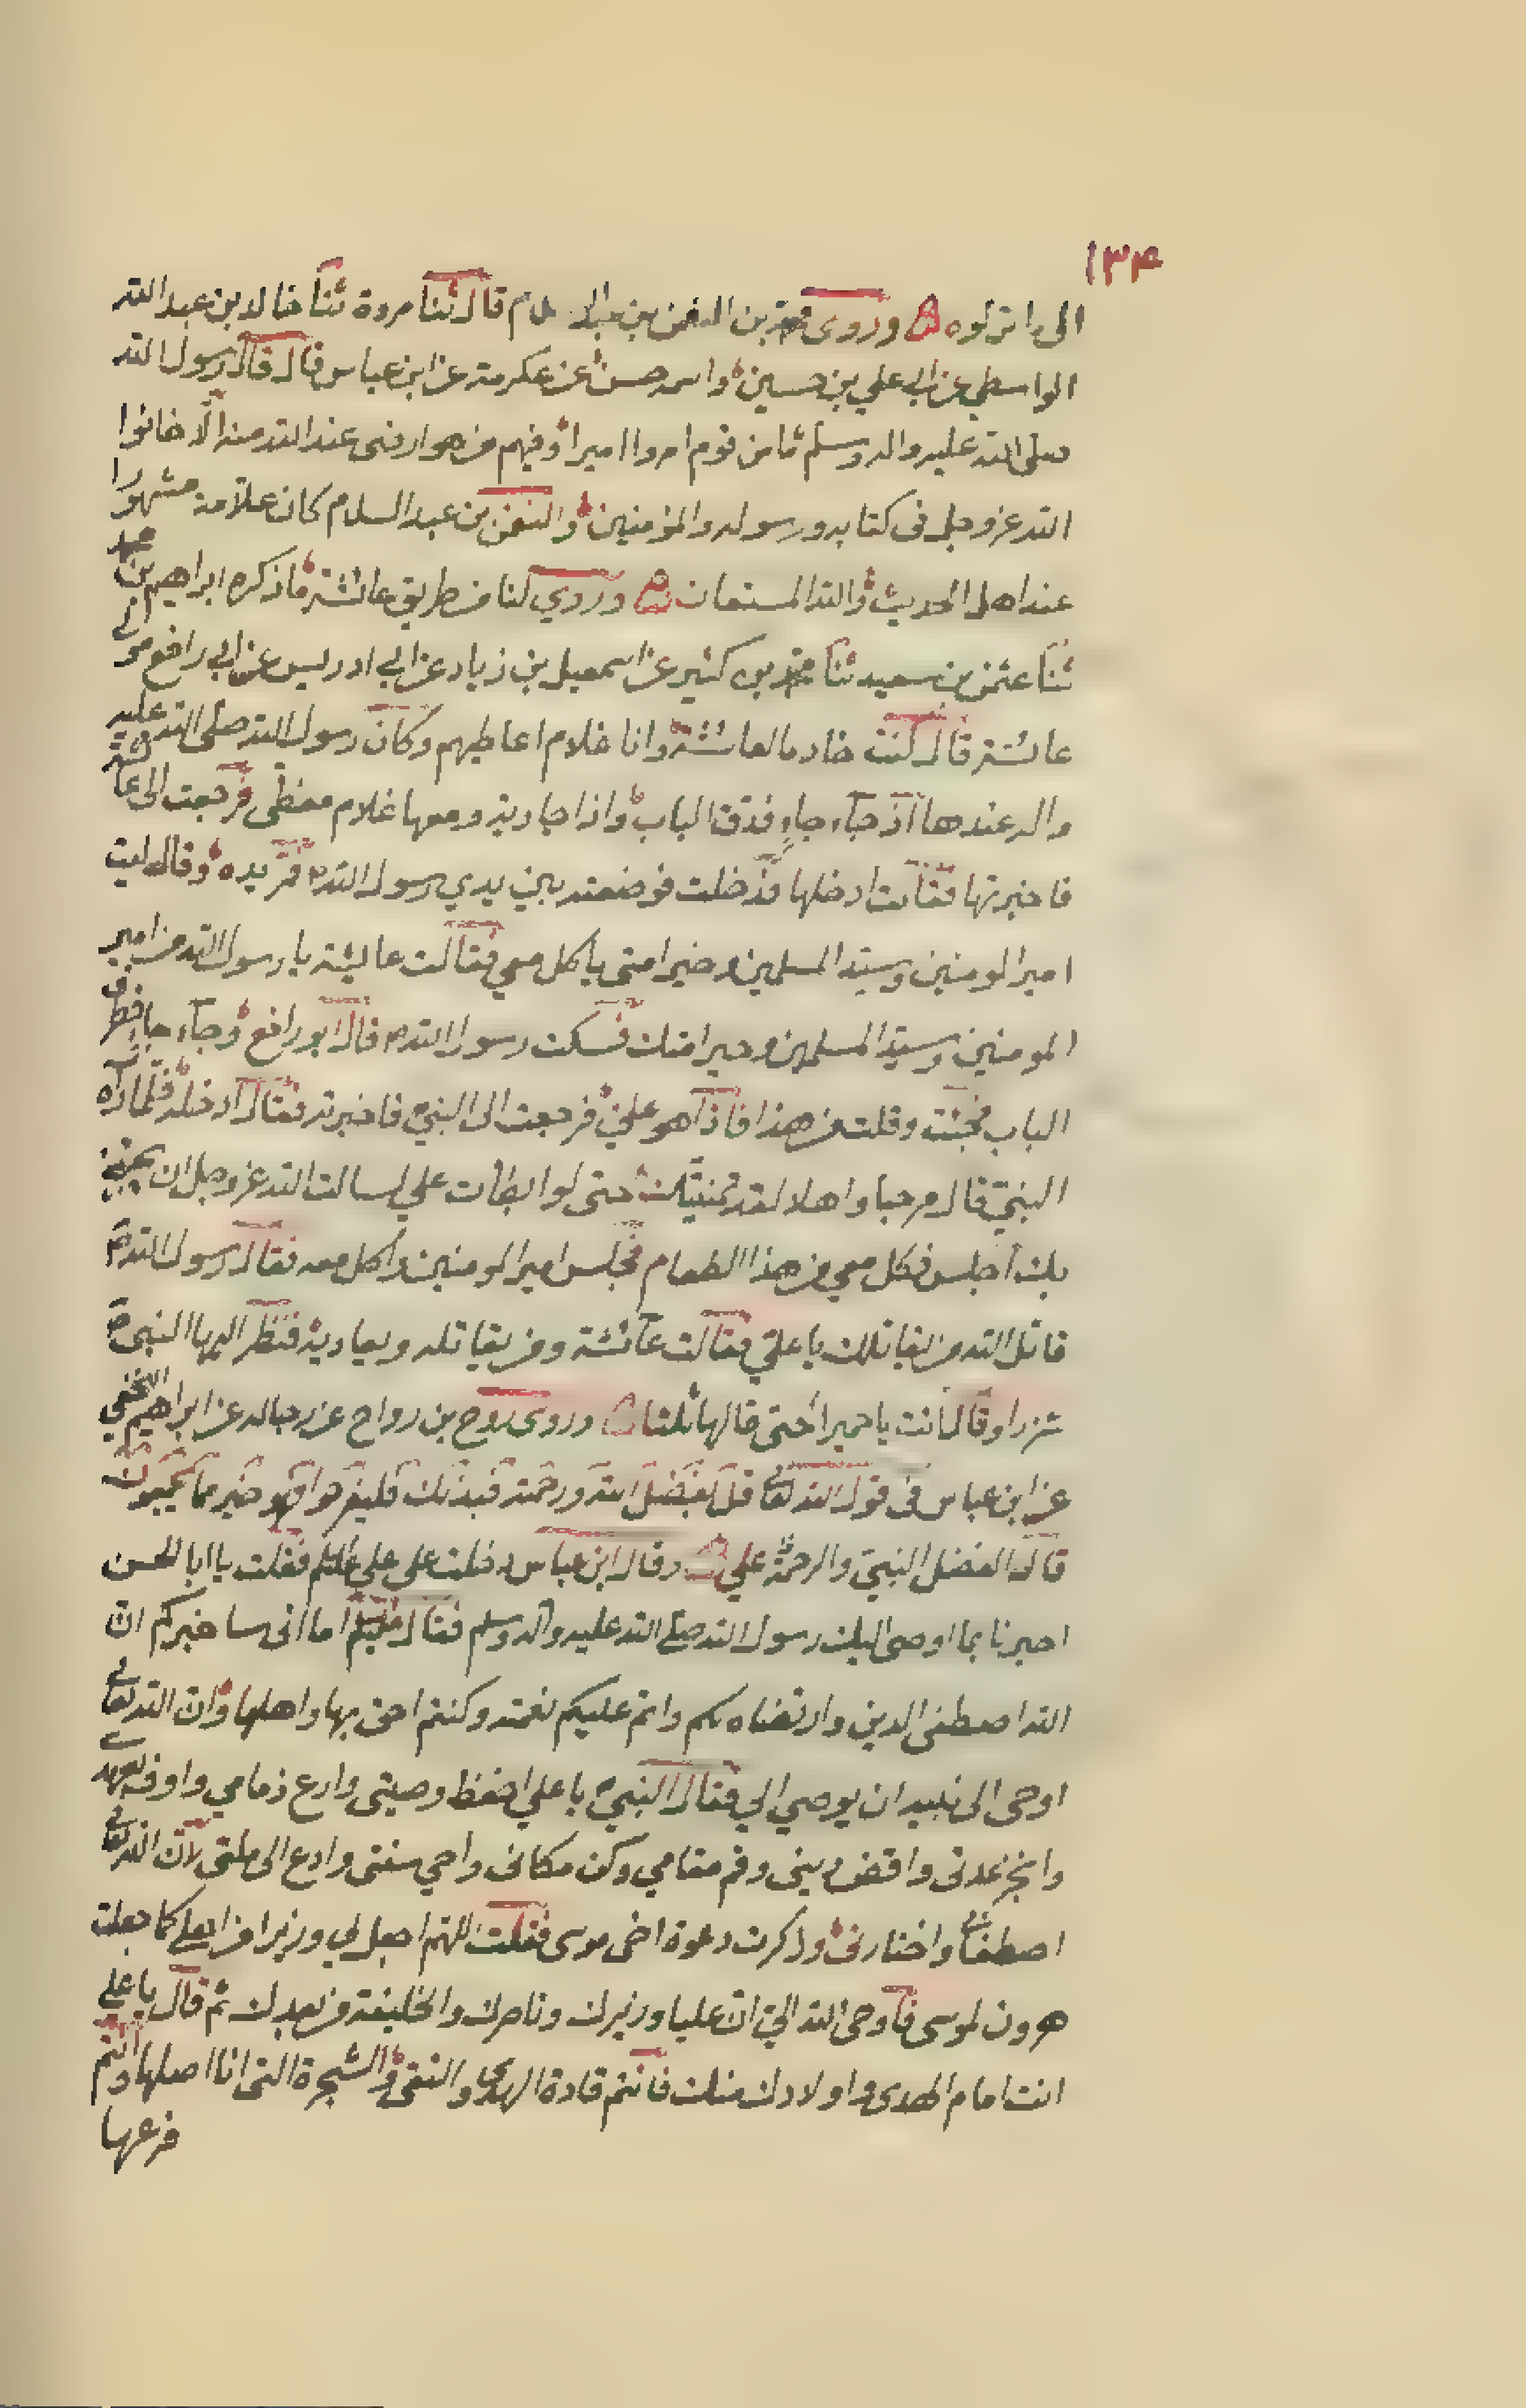 ١٣٤
الى ما تركوه وروى محمد بن النعمن بن عبد السلام قال ثنا مروة ثنا خالد بن عبد الله
الواسطي عن ابي علي بن حسين واسمه حسن عن عكرمة عن ابن عباس قال قال رسول الله
صلى الله عليه واله وسلم ما من قوم امروا اميرا وفيهم من هو ارضى عند الله منه الا خانوا
الله عز وجل في كتابه ورسوله والمؤمنين والنعمن بن عبد السلام كان علامة مشهورا
عند اهل الحديث والله المستعان وروي لنا من طريق عائشة ما ذكره ابراهيم بن محمد
ثنا عثمن بن سعيد ثنا محمد بن كثير عن اسمعيل بن زياد عن ابي ادريس عن ابي رافع مولى
عائشة قال كنت خادما لعائشة وانا غلام اعاطيهم وكان رسول الله صلى الله عليه
واله عندها اذ جاء جاءٍ فدق الباب واذا جارية ومعها غلام مغطى فرجعت الى عائشة
فاخبرتها فقالت ادخلها فدخلت فوضعته بين يدي رسول الله ص فمد يده وقال ليت
امير المومنين وسيد المسلمين وخير امتى ياكل معي فقالت عايشة يا رسول الله من امير
المومنين وسيد المسلمين وخير امتك فسكت رسول الله ص قال ابو رافع وجاء جاءٍ فطرق
الباب فجئت وقلت من هذا فاذا هو علي فرجعت الى النبي ص فاخبرته فقال ادخله فلما رآه
النبي قال مرحبا واهلا لقد تمنيتك حتى لو ابطأت علي لسالت الله عز وجل ان يجيئني
بك اجلس فكل معي من هذا الطعام فجلس امير المومنين واكل معه فقال رسول الله ص
قاتل الله من يقاتلك يا علي فقالت عائشة ومن يقاتله ويعاديه فنظر اليها النبي ص
شزرا وقال انت يا حميرا حتى قالها ثلثا وروى روح بن رواح عن رجاله عن ابراهيم النخعي
عن ابن عباس فى قول الله تعالى قل بفضل الله ورحمته فبذلك فليفرحوا هو خير مما يجمعون
قال الفضل النبي والرحمة علي وقال ابن عباس دخلت على علي عليلم فقلت يا ابا الحسن
اخبرنا بما اوصى اليك رسول الله صلى الله عليه واله وسلم فقال عليلم اما انى ساخبركم ان
الله اصطفى الدين وارتضاه لكم واتم عليكم نعمته وكنتم احق بها واهلها وان الله تعالى
اوحى الى نبيه ان يوصي الي فقال النبي ص يا علي احفظ وصيتى وارع ذمامي واوف بعهدي
وانجز عدتى واقض دينى وقم مقامي وكن مكانى واحي سنتى وادع الى ملتى لان الله تعالى
اصطفانى واختارنى وذكرت دعوة اخى موسى فقلت اللهم اجعل لي وزيرا من اهلي كما جعلت
هرون لموسى فاوحى الله الي ان عليا وزيرك وناصرك والخليفة من بعدك ثم قال يا علي
انت امام الهدى واولادك منك فانتم قادة الهدى والتقى والشجرة التى انا اصلها وانتم
فرعها